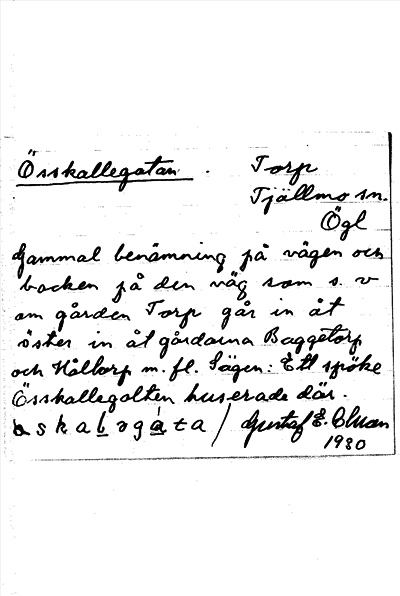 Össkallegatan. Torp
Tjällmo sn.
Ögl
Gammal benämning på vägen och
backen på den väg som s. v
om gården Torp går in åt
öster in åt gårdarna Baggetorp
och Hålltorp m. fl. Sägen: Ett spöke
Össkallegalten huserade där.
askalagata / Gustaf E.
1930